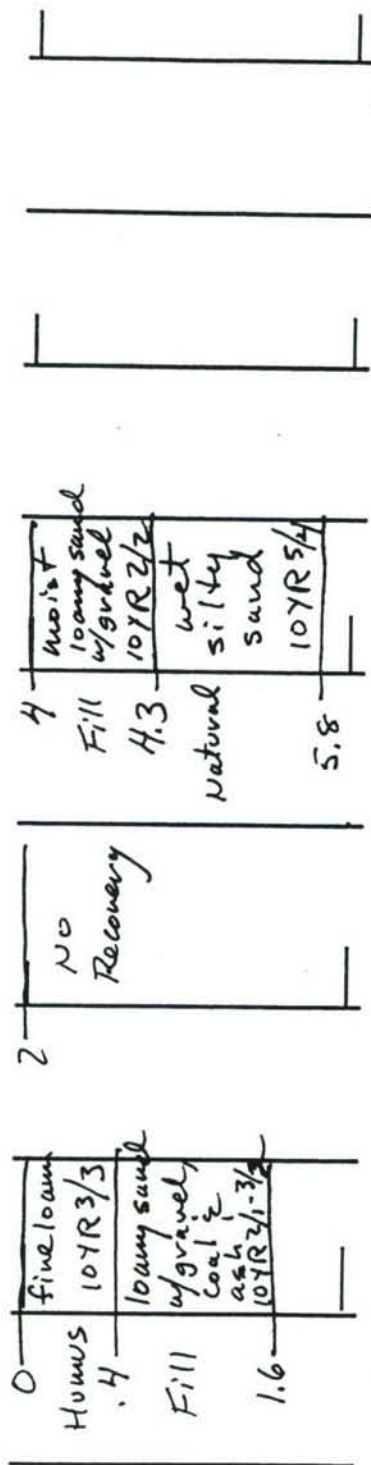 0
Humus
.4
Fill
1.6
fine loam
10YR 3/3
loamy sand
w/gravel,
coal &
ash
10YR 2/1-3/2
2
No
Recovery
4
Fill
4.3
Natural
5.8
moist
loamy sand
w/gravel
10YR 2/2
wet
silty
sand
10YR 5/4